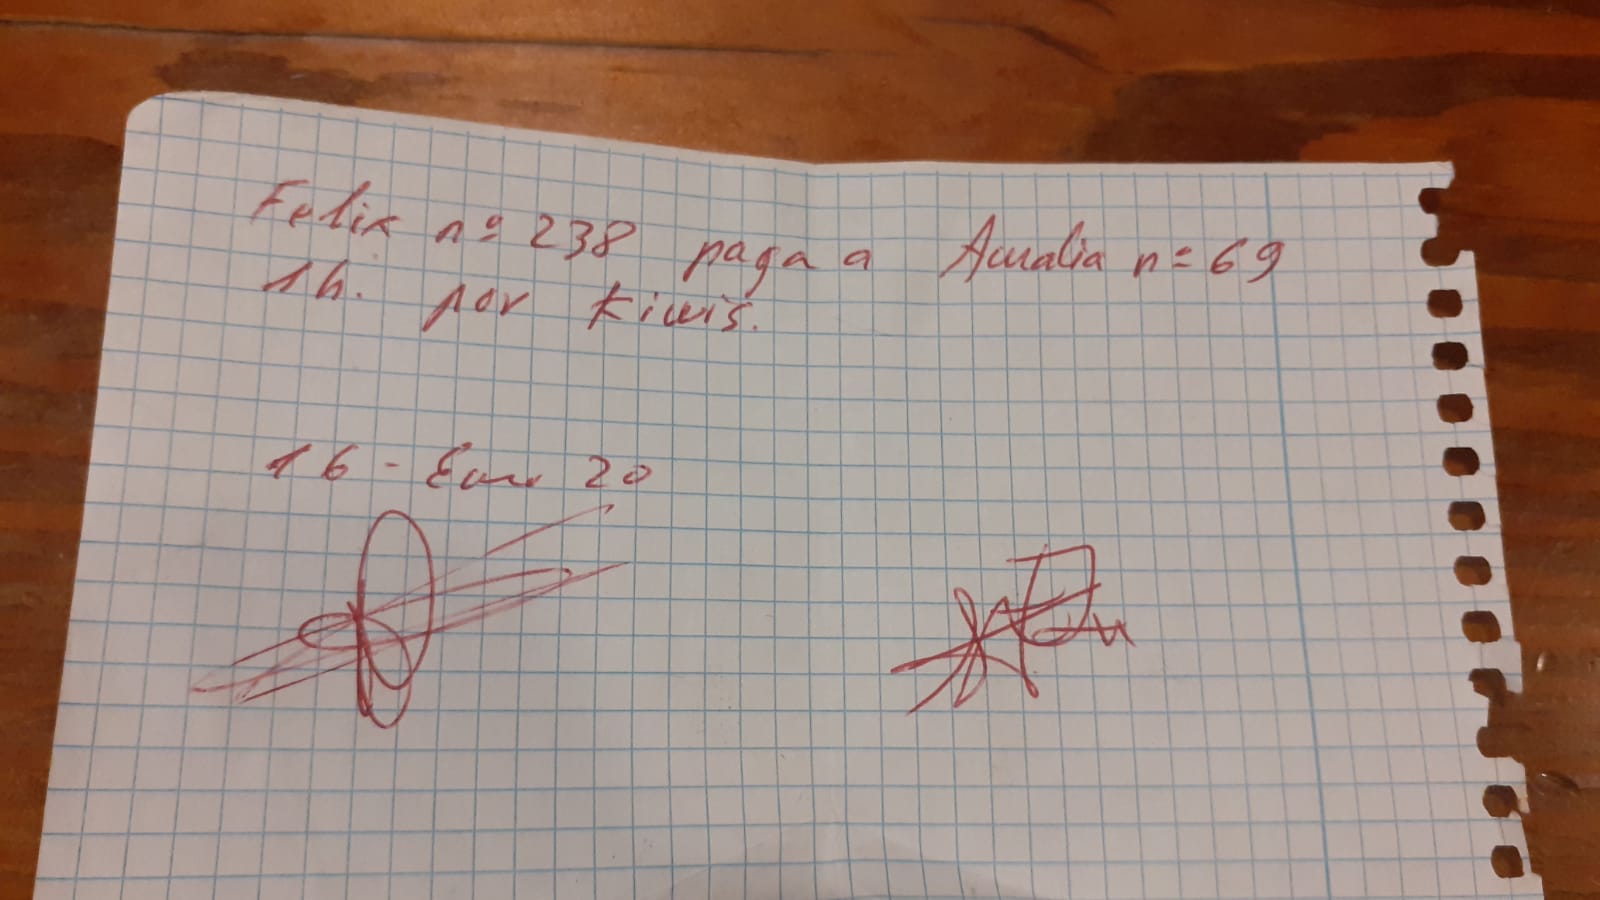 Felix nº 238 paga a Amalia nº 69
1h. por kiwis.
16 - Ene 20